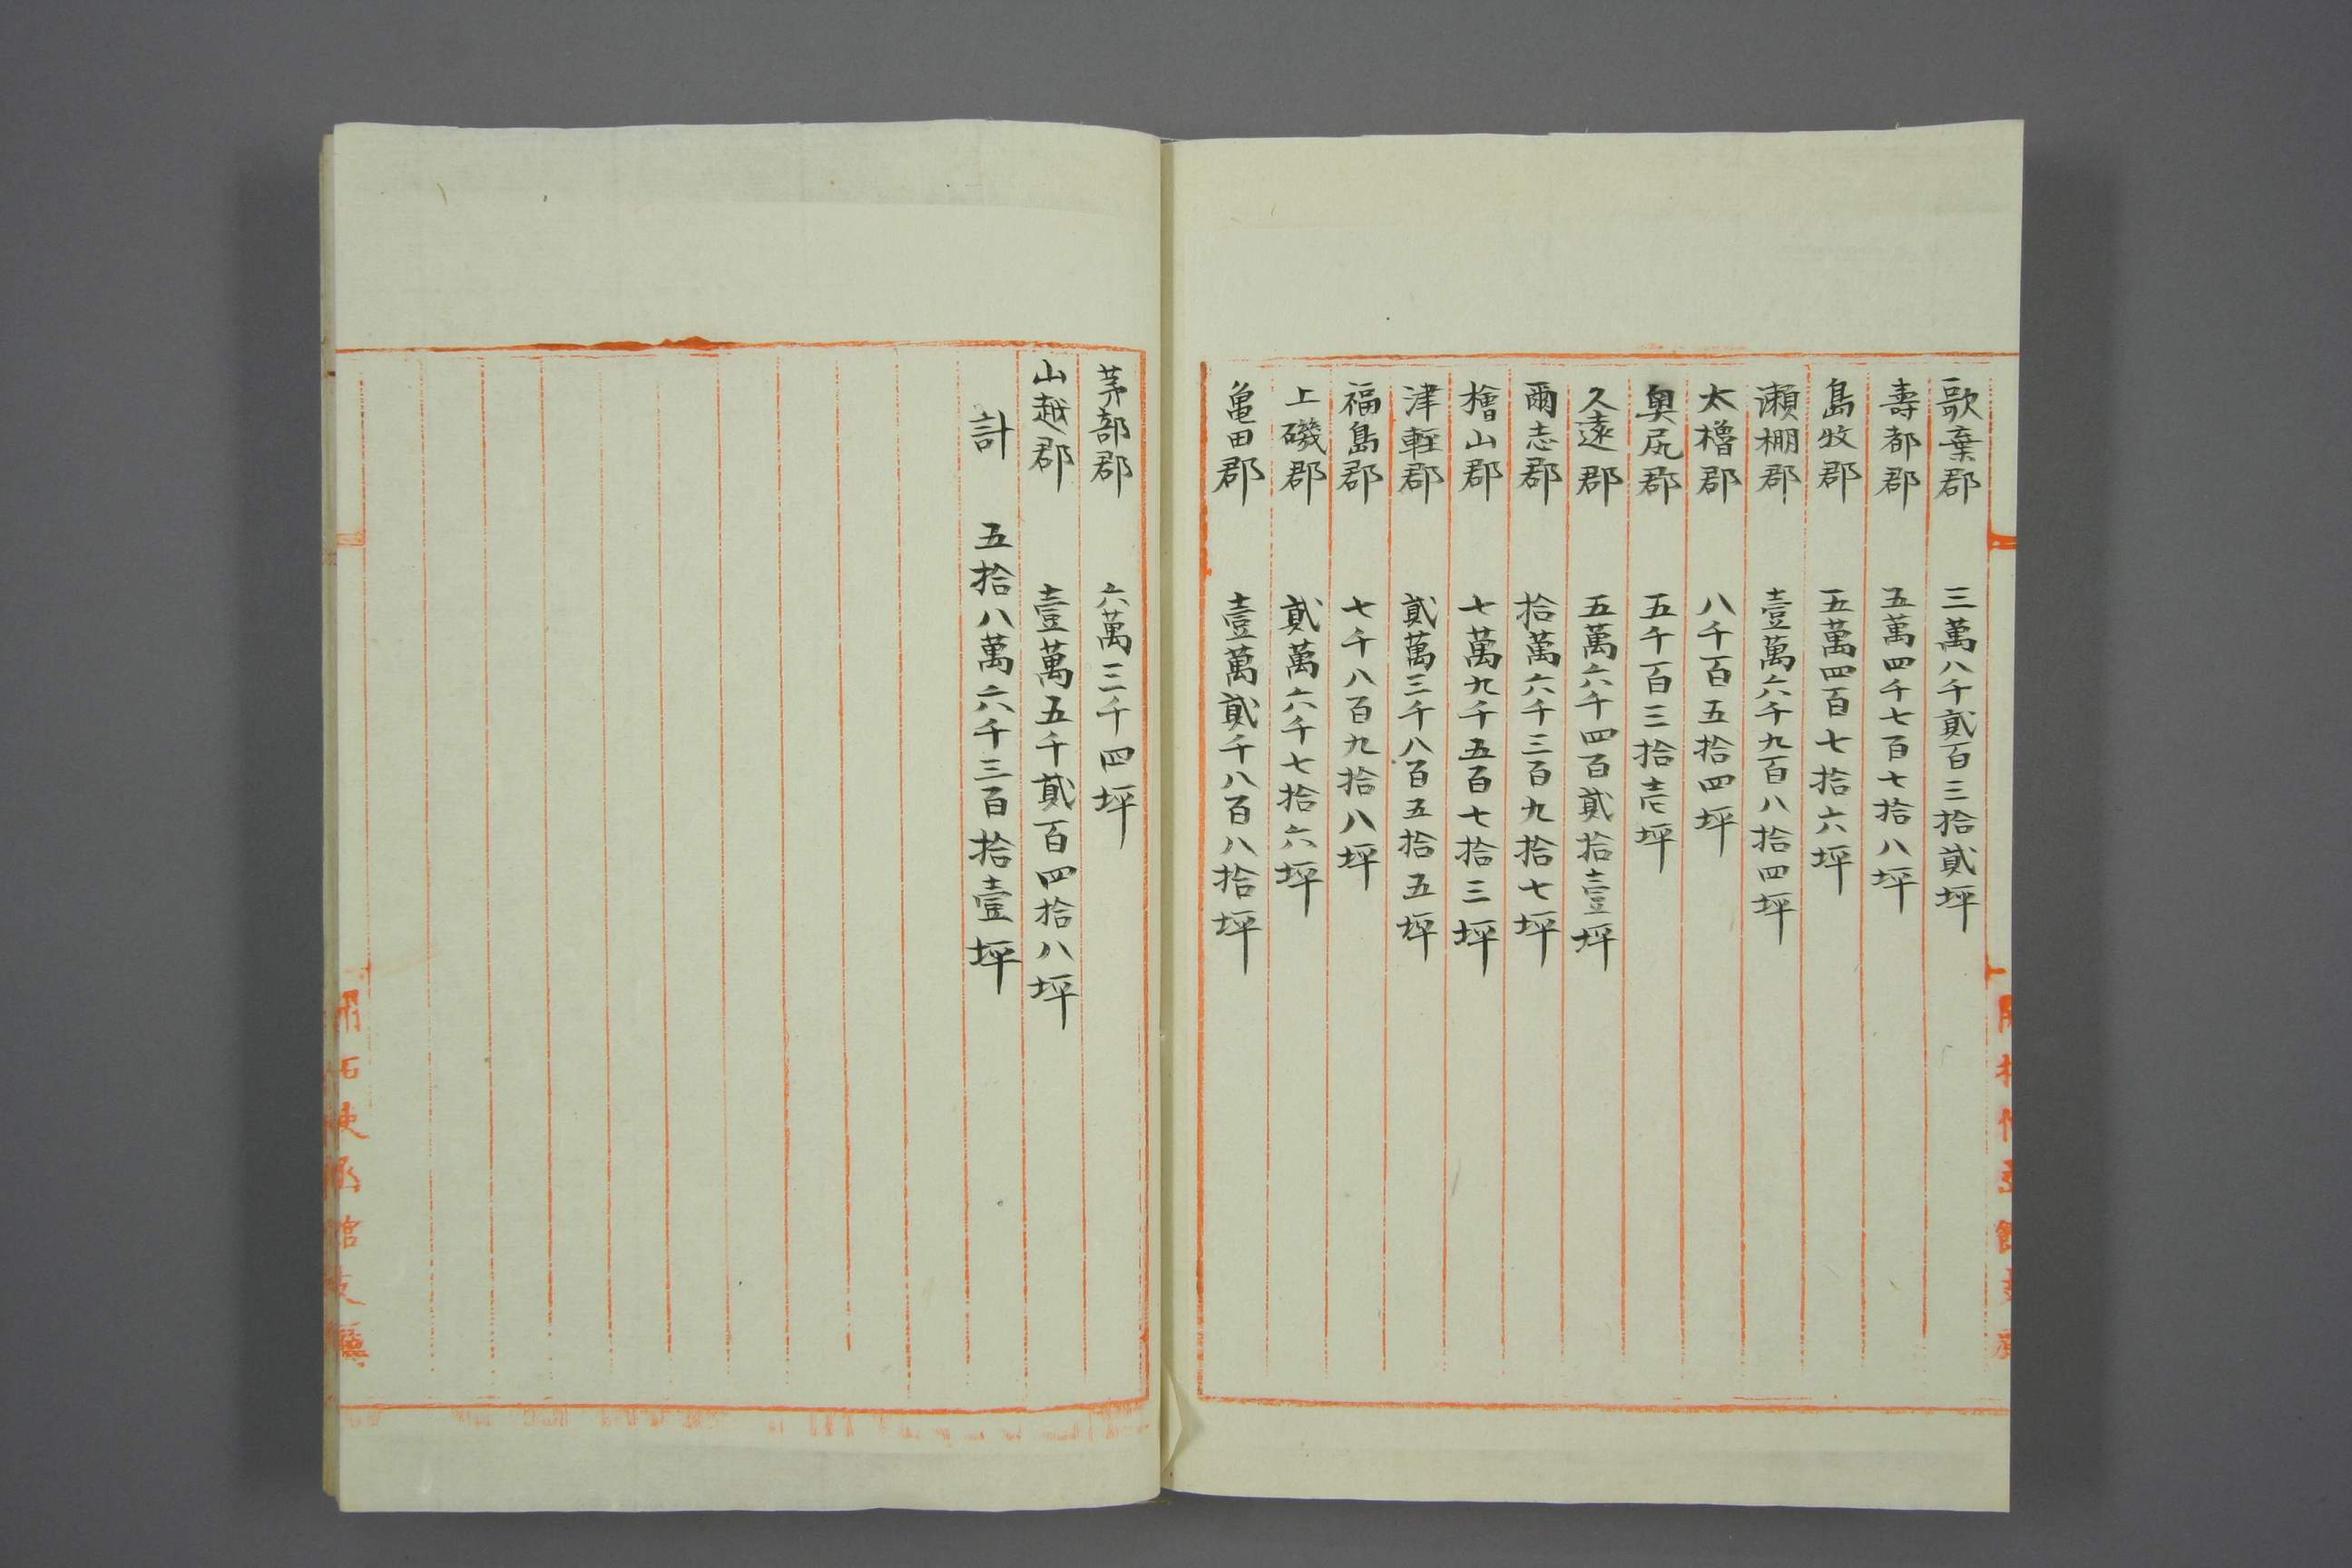 歌棄郡 三萬八千貳百三拾貳坪
壽都郡 五萬四千七百七拾八坪
島牧郡 五萬四百七拾六坪
瀬棚郡 壹萬六千九百八拾四坪
太櫓郡 八千百五拾四坪
奥尻郡 五千百三拾壱坪
久遠郡 五萬六千四百貳拾壹坪
爾志郡 拾萬六千三百九拾七坪
檜山郡 七萬九千五百七拾三坪
津軽郡 貳萬三千八百五拾五坪
福島郡 七千八百九拾八坪
上磯郡 貳萬六千七拾六坪
亀田郡 壹萬貳千八百八拾坪
茅部郡 六萬三千四坪
山越郡 壹萬五千貳百四拾八坪
計 五拾八萬六千三百拾壹坪
開拓使函館支廳